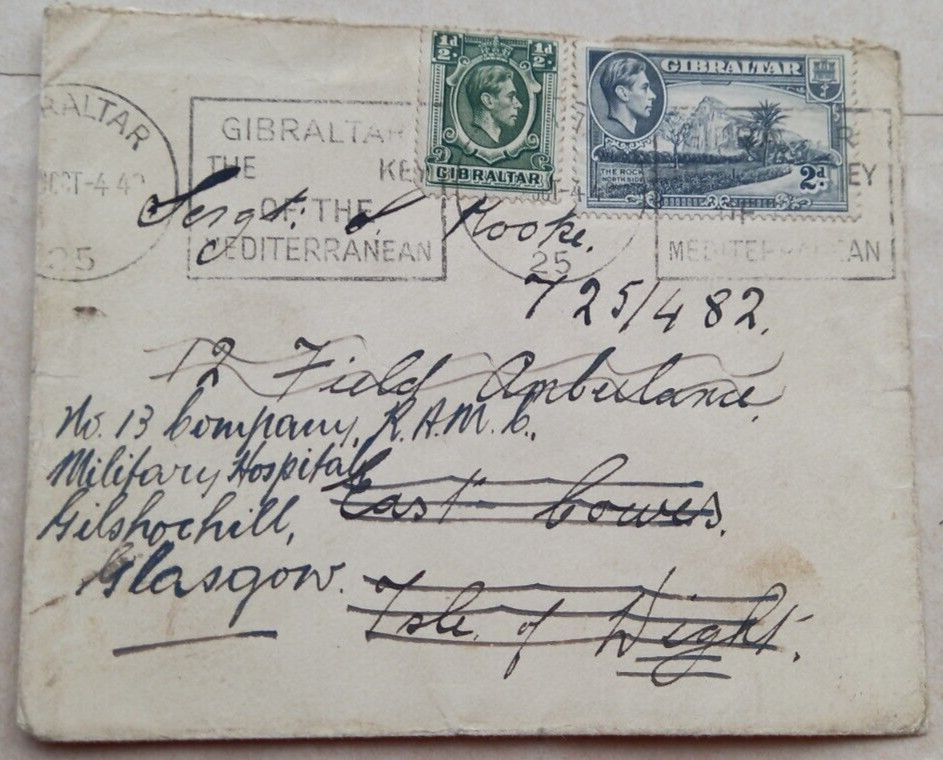 ½d ½d
GIBRALTAR
GIBRALTAR
THE ROCK
NORTH SIDE
2d
RALTAR
OCT-4 4
25
GIBRALTAR
THE KEY
OF THE
MEDITERRANEAN
25
EY
MEDITERRANEAN
Sergt. J Rooke.
725/482.
12 Field Ambulance,
No. 13 Company, R.A.M.C.,
Military Hospital,
Gilshochill,
Glasgow.
East Cowes.
Isle of Wight.